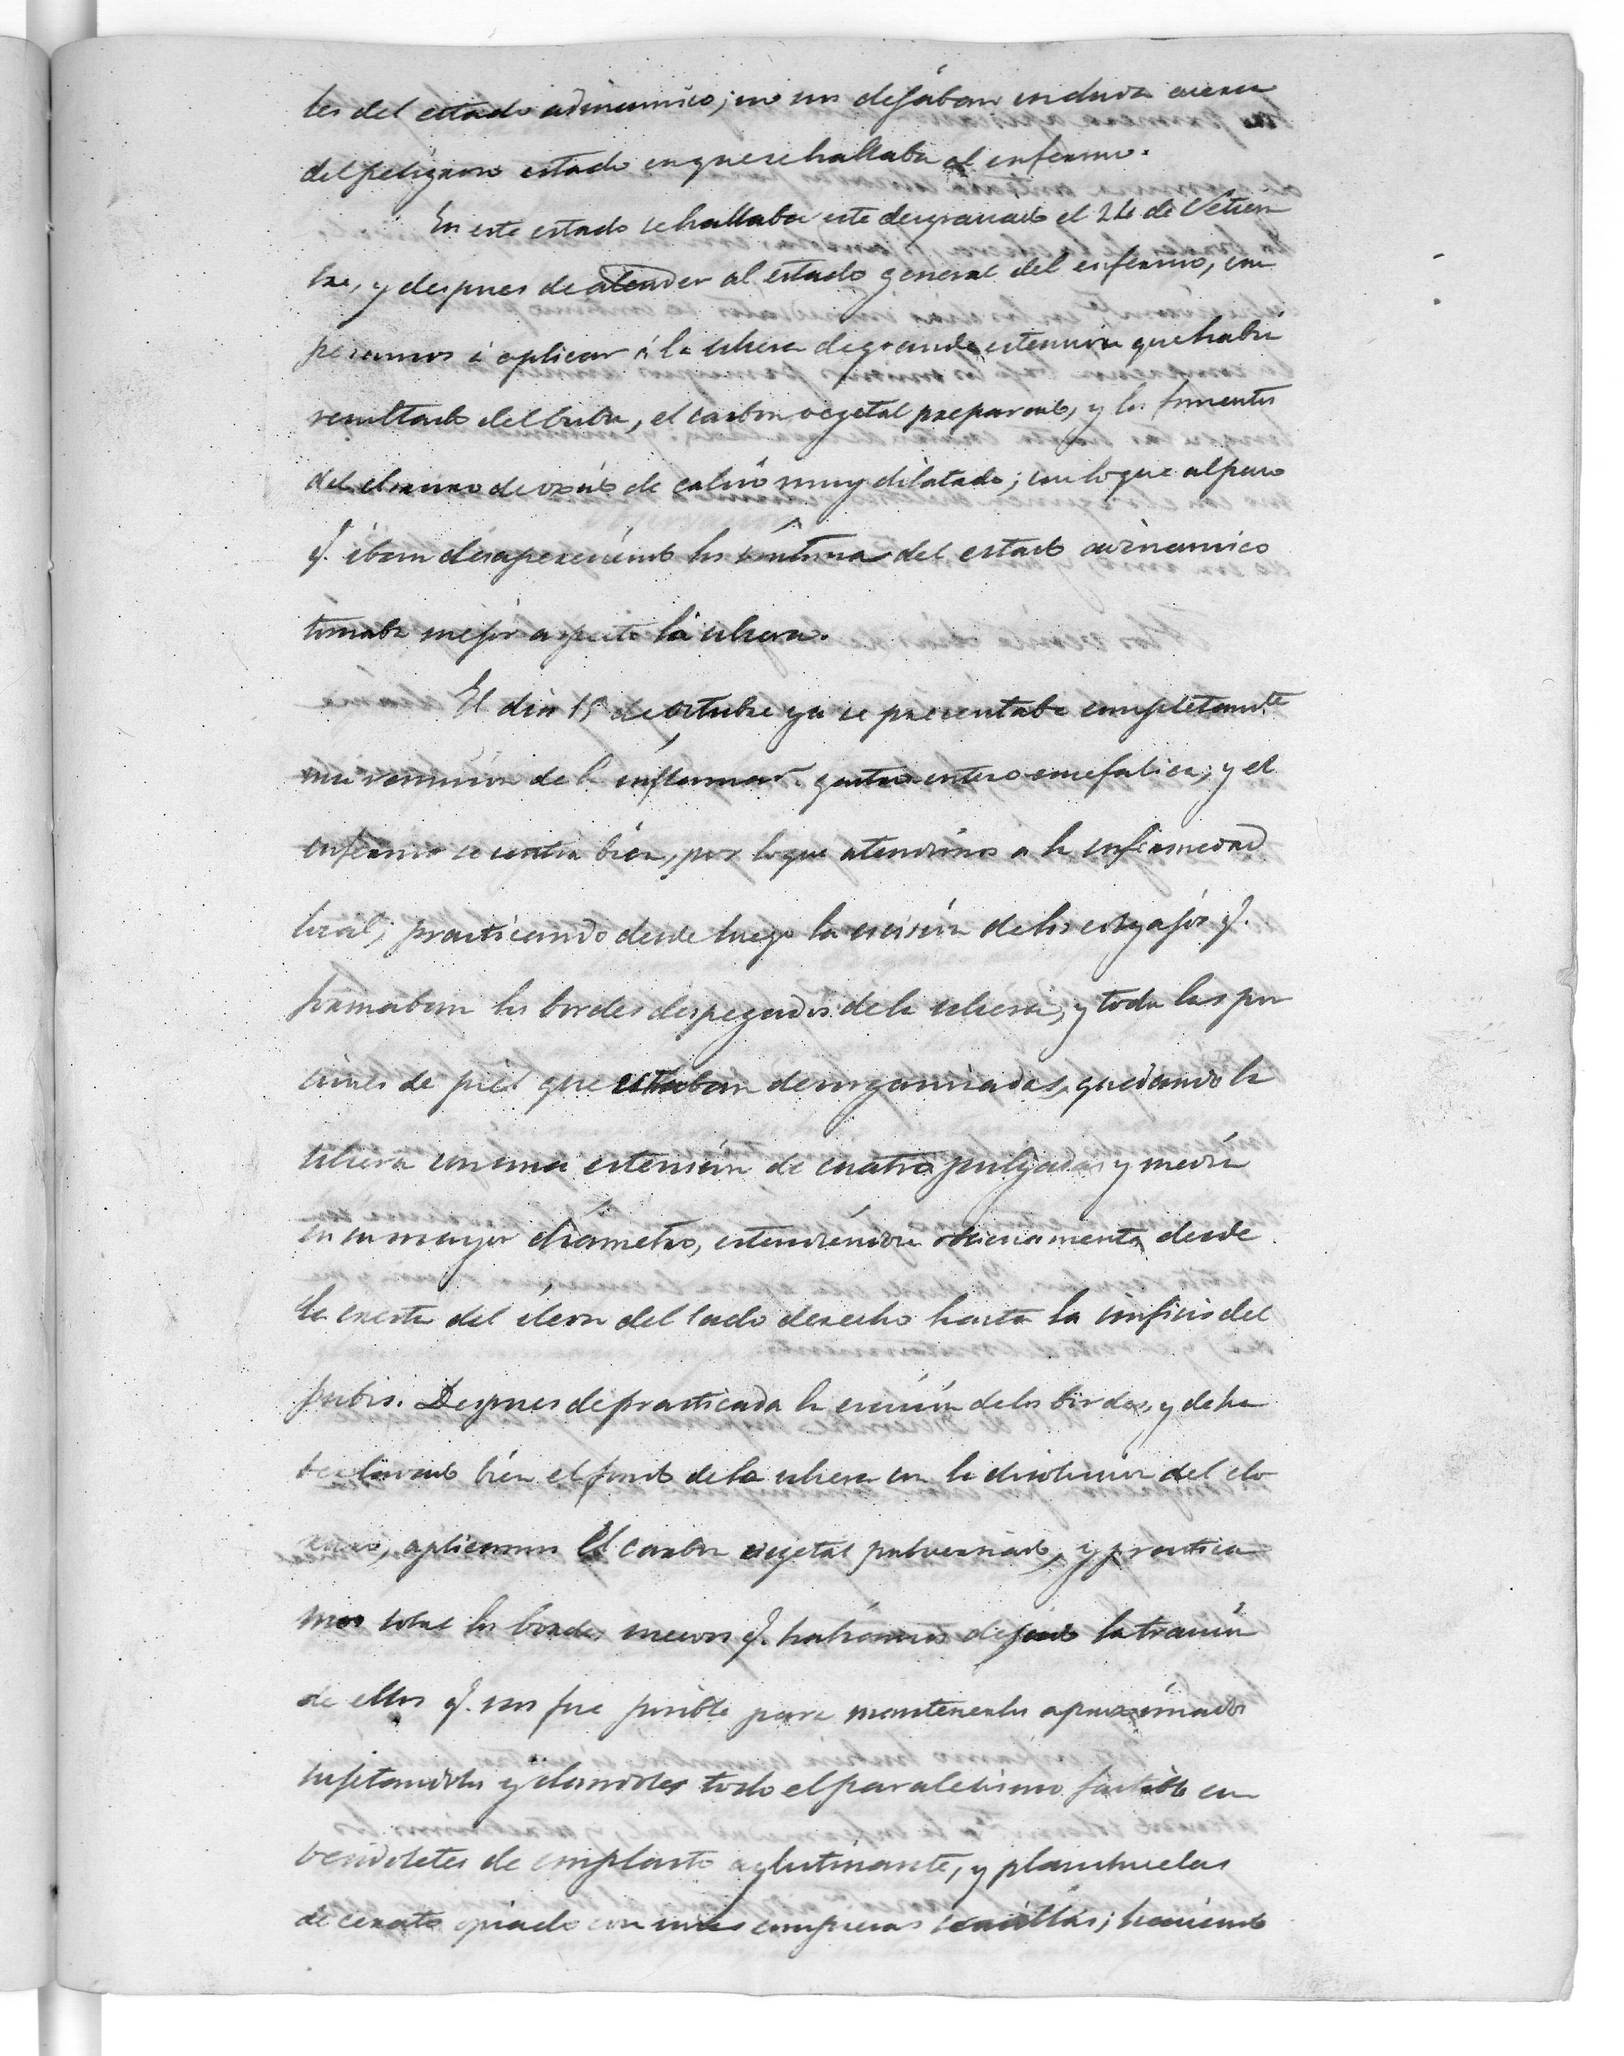 tes del estado adinamico; no nos dejában en duda acerca
del peligroso estado en que se hallaba el enfermo.
En este estado se hallaba este desgraciado el 24 de Setiem
bre, y despues de atender al estado general del enfermo, em
pezamos á aplicar á la ulcera de grande estension que habia
resultado del bubon, el carbon vegetal preparado, y los fomentos
del cloruro de oxido de calcio muy dilatado; con lo que al paso
q.e iban desapareciendo los sintomas del estado adinamico
tomaba mejor aspecto la ulcera.
El dia 15 de octubre ya se presentaba completam.te
una remision de la inflamac.n gastro entero encefalica; y el
enfermo se sentia bien, por lo que atendimos a la enfermedad
local; practicando desde luego la escision de los colgajos q.e
formaban los bordes despegados de la ulcera, y todas las por
ciones de piel que estaban desorganizadas, quedando la
ulcera con una estension de cuatro pulgadas y media
en su mayor diámetro, estendiendose desde
la cresta del íleon del lado derecho hasta la sinfisis del
pubis. Despues de practicada la escision de los bordes, y de ha
ber lavado bien el fondo de la ulcera con la disolucion del clo
ruro, aplicamos el carbon vegetal pulverizado, y practica
mos sobre los bordes nuevos q.e habiamos dejado la traccion
de ellos q.e nos fue posible para mantenerlos aproximados
sujetandolos y dandoles todo el paralelismo factible con
vendoletes de emplasto aglutinante, y planchuelas
de cerato opiado con unas compresas sencillas; haciendo